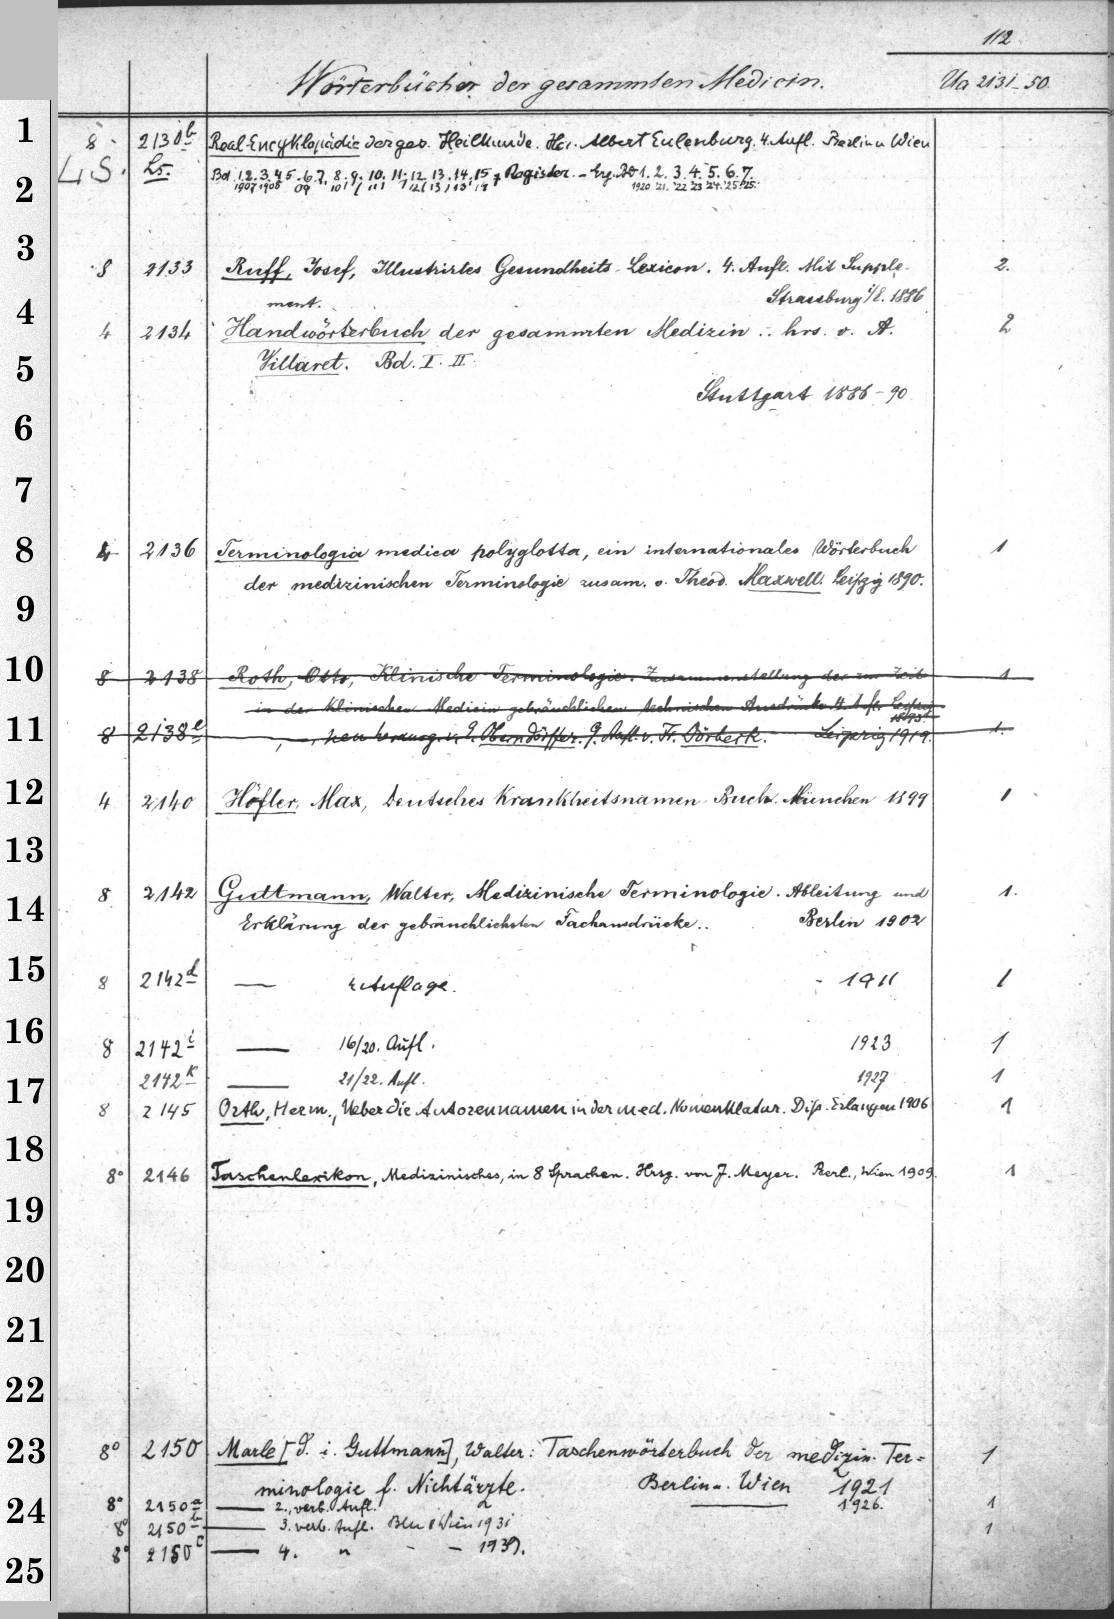 112
Wörterbücher der gesammten Medicin. Ua 2131-50.
1
8. 2130b Real-Encyklopädie der ges. Heilkunde. Albert Eulenburg. 4. Aufl. Berlin u Wien
2
LS. Ls. Bd. 1. 2. 3. 4. 5. 6. 7. 8. 9. 10. 11. 12. 13. 14. 15. Register. - Erg. Bd 1. 2. 3. 4. 5. 6. 7.
1907 1908 09 10 11 12 13 13 14 1920 '21. '22 '23 '24. '25. '25.
3
8 2133 Ruff, Josef, Illustrirtes Gesundheits-Lexicon. 4. Aufl. Mit Supple- 2.
ment. Strassburg i/E. 1886
4
4 2134 Handwörterbuch der gesammten Medizin .. hrs. v. A. 2
5
Villaret. Bd. I. II.
Stuttgart 1886-90
6
7
8
4 2136 Terminologia medica polyglotta, ein internationales Wörterbuch 1
der medizinischen Terminologie zusam. v. Theod. Maxwell. Leipzig 1890.
9
10
8 2138 Roth, Otto, Klinische Terminologie. Zusammenstellung der zur Zeit 1
in der klinischen Medicin gebräuchlichen technischen Ausdrücke. 4. Aufl. Leipzig
11
8 2138e -, -, neu herausg. v. E. Oberndörffer. 9. Aufl. v. Fr. Dörbeck. Leipzig 1919. 1.
12
4 2140 Höfler, Max, Deutsches Krankheitsnamen-Buch. München 1899 1
13
14
8 2142 Guttmann, Walter, Medizinische Terminologie. Ableitung und 1.
Erklärung der gebräuchlichsten Fachausdrücke.. Berlin 1902
15
8 2142d — Auflage. - 1911 1
16
8 2142i — 16/20. Aufl. 1923 1
17
2142k — 21/22. Aufl. 1927 1
8 2145 Orth, Herm., Ueber die Autorennamen in der med. Nomenklatur. Diss. Erlangen 1906 1
18
8° 2146 Taschenlexikon, Medizinisches, in 8 Sprachen. Hrsg. von J. Meyer. Berl., Wien 1909. 1
19
20
21
22
23
8° 2150 Marle [d. i. Guttmann], Walter: Taschenwörterbuch der medizin. Ter= 1
minologie f. Nichtärzte. Berlin u. Wien 1921
24
8° 2150a — 2., verb. Aufl. — 1926. 1
8° 2150b — 3. verb. Aufl. Bln Wien 1931 1
8° 2150c — 4. " - - 1939.
25